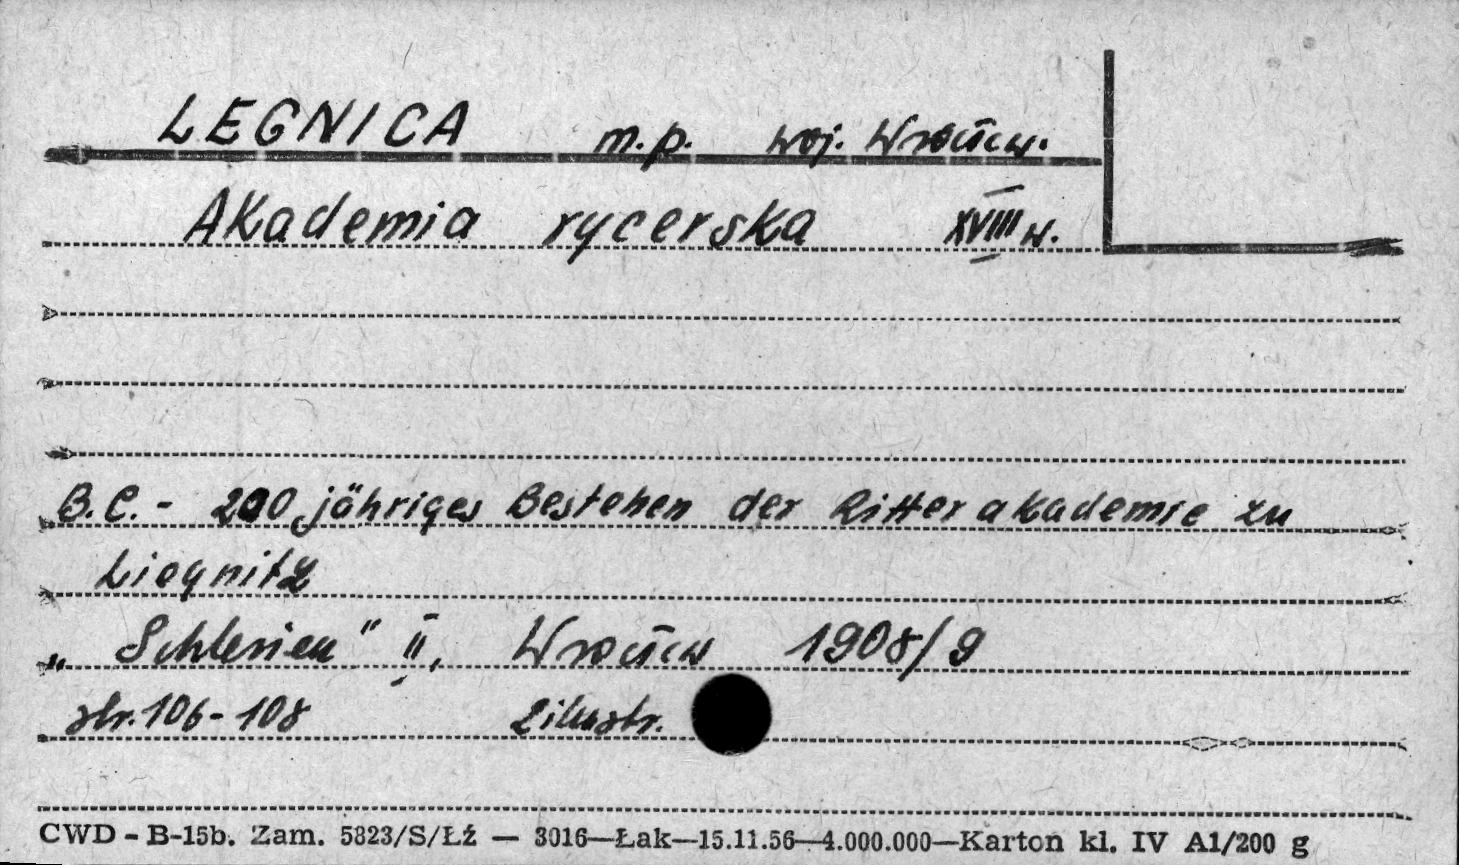 LEGNICA m.p. woj. Wrocław.
Akademia rycerska XVIII w.
B.C. - 200 jähriges Bestehen der Ritterakademie zu
Liegnitz
„Schlesien" II, Wrocław 1908/9
str. 106-108 2 ilustr.
CWD - B-15b. Zam. 5823/S/Łź — 3016—Łak—15.11.56—4.000.000—Karton kl. IV A1/200 g